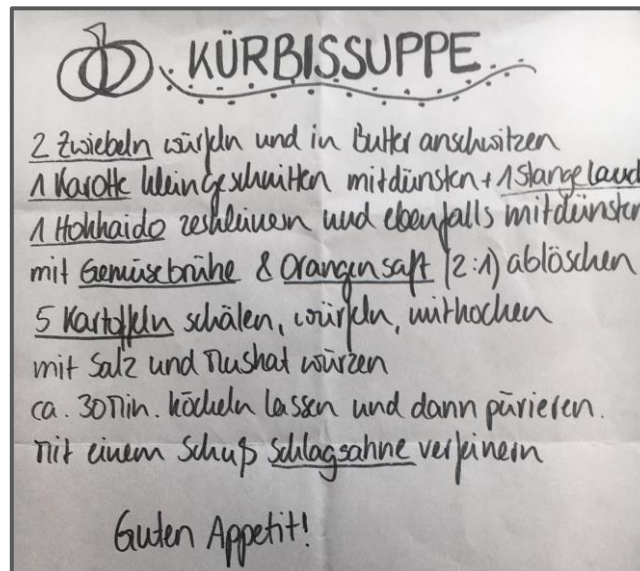 KÜRBISSUPPE
2 Zwiebeln würfeln und in Butter anschwitzen
1 Karotte kleingeschnitten mitdünsten + 1 Stange Lauch
1 Hokkaido zerkleinern und ebenfalls mitdünsten
mit Gemüsebrühe & Orangensaft (2:1) ablöschen
5 Kartoffeln schälen, würfeln, mitkochen
mit Salz und Muskat würzen
ca. 30 Min. köcheln lassen und dann pürieren.
Mit einem Schuß Schlagsahne verfeinern
Guten Appetit!